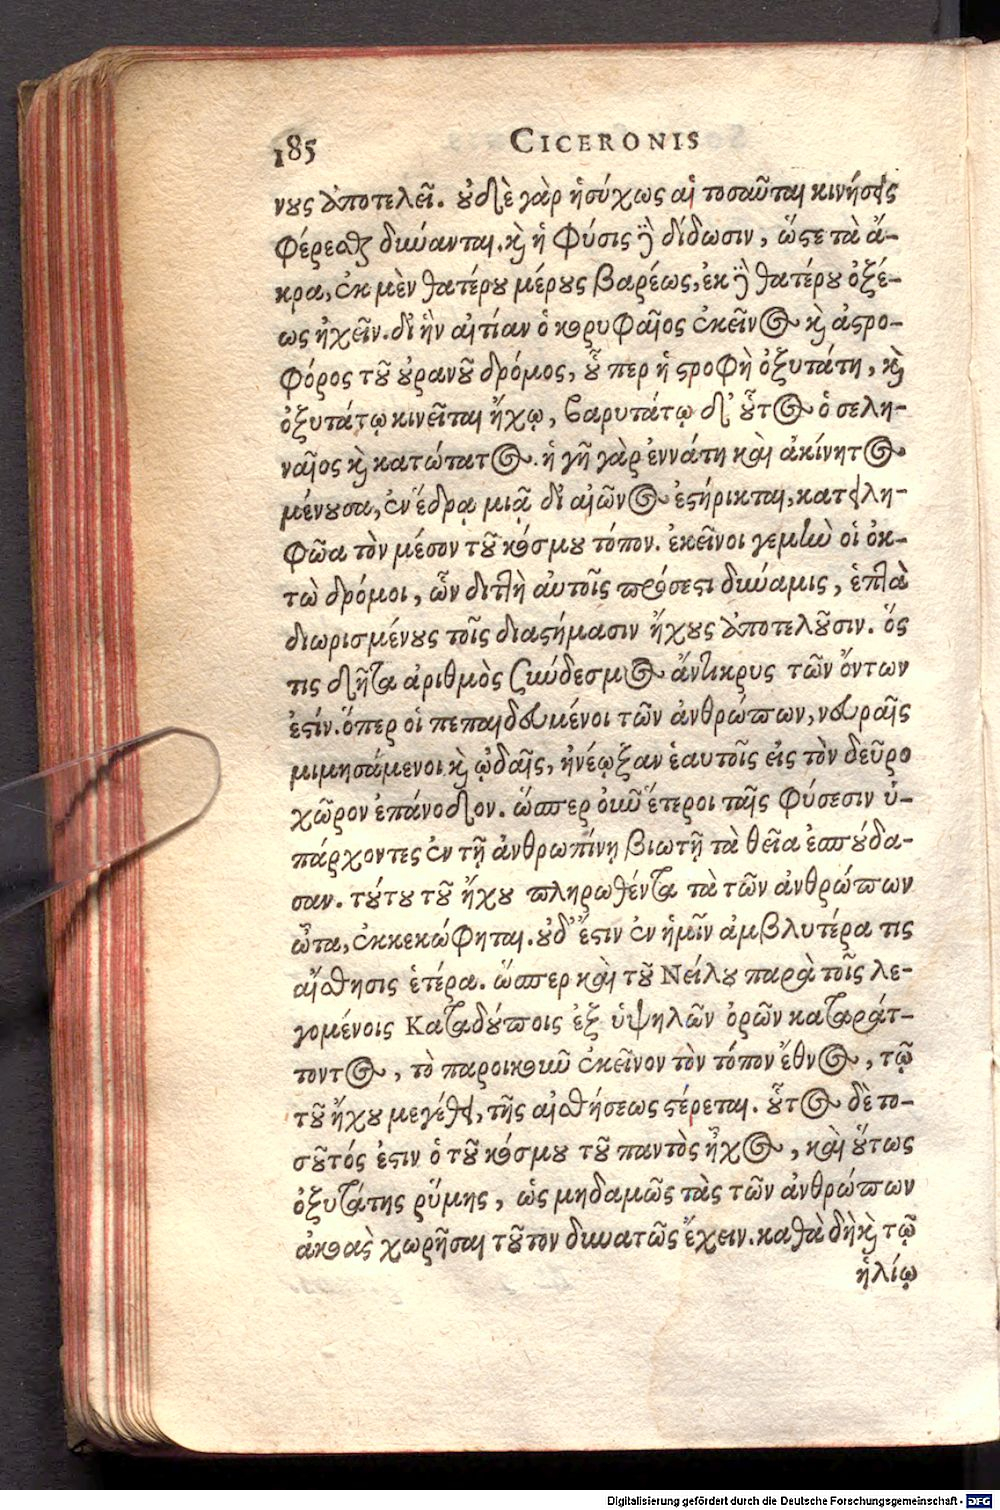 185 CICERONIS
νους ἀποτελεῖ. οὐδὲ γὰρ ἡσύχως αἱ τοσαῦται κινήσεις
φέρεσθαι δύνανται, καὶ ἡ φύσις δὲ δίδωσιν, ὥστε τὰ ἄ-
κρα, ἐκ μὲν θατέρου μέρους βαρέως, ἐκ δὲ θατέρου ὀξέ-
ως ἠχεῖν. δι᾽ ἣν αἰτίαν ὁ κορυφαῖος ἐκεῖνος καὶ ἀστρο-
φόρος τοῦ οὐρανοῦ δρόμος, οὗ περ ἡ στροφὴ ὀξυτάτη, καὶ
ὀξυτάτῳ κινεῖται ἤχῳ, βαρυτάτῳ δ᾽ οὗτος ὁ σελη-
ναῖος καὶ κατώτατος. ἡ γῆ γὰρ ἐννάτη καὶ ἀκίνητος
μένουσα, ἐν ἕδρᾳ μιᾷ δι᾽ αἰῶνος ἐστήρικται, κατειλη-
φῶα τὸν μέσον τοῦ κόσμου τόπον. ἐκεῖνοι γεμὴν οἱ ὀκ-
τὼ δρόμοι, ὧν διπλὴ αὐτοῖς πρόσεστι δύναμις, ἑπτὰ
διωρισμένους τοῖς διαστήμασιν ἤχους ἀποτελοῦσιν. ὅς
τις δῆτα ἀριθμὸς σύνδεσμος ἄντικρυς τῶν ὄντων
ἐστίν. ὅπερ οἱ πεπαιδευμένοι τῶν ἀνθρώπων, νευραῖς
μιμησάμενοι καὶ ᾠδαῖς, ἠνέῳξαν ἑαυτοῖς εἰς τὸν δεῦρο
χῶρον ἐπάνοδον. ὥσπερ οὖν ἕτεροι ταῖς φύσεσιν ὑ-
πάρχοντες ἐν τῇ ἀνθρωπίνῃ βιωτῇ τὰ θεῖα ἐσπούδα-
σαν. τούτου τοῦ ἤχου πληρωθέντα τὰ τῶν ἀνθρώπων
ὦτα, ἐκκεκώφηται. οὐδ᾽ ἔστιν ἐν ἡμῖν ἀμβλυτέρα τις
αἴσθησις ἑτέρα. ὥσπερ καὶ τοῦ Νείλου παρὰ τοῖς λε-
γομένοις Καταδούποις ἐξ ὑψηλῶν ὀρῶν καταράτ-
τοντος, τὸ παροικοῦν ἐκεῖνον τὸν τόπον ἔθνος, τῷ
τοῦ ἤχου μεγέθει, τῆς αἰσθήσεως στέρεται. οὗτος δὲ το-
σοῦτός ἐστιν ὁ τοῦ κόσμου τοῦ παντὸς ἦχος, καὶ οὕτως
ὀξυτάτης ῥύμης, ὡς μηδαμῶς τὰς τῶν ἀνθρώπων
ἀκοὰς χωρῆσαι τοῦτον δυνατῶς ἔχειν. καθὰ δὴ καὶ τῷ
ἡλίῳ
Digitalisierung gefördert durch die Deutsche Forschungsgemeinschaft - DFG